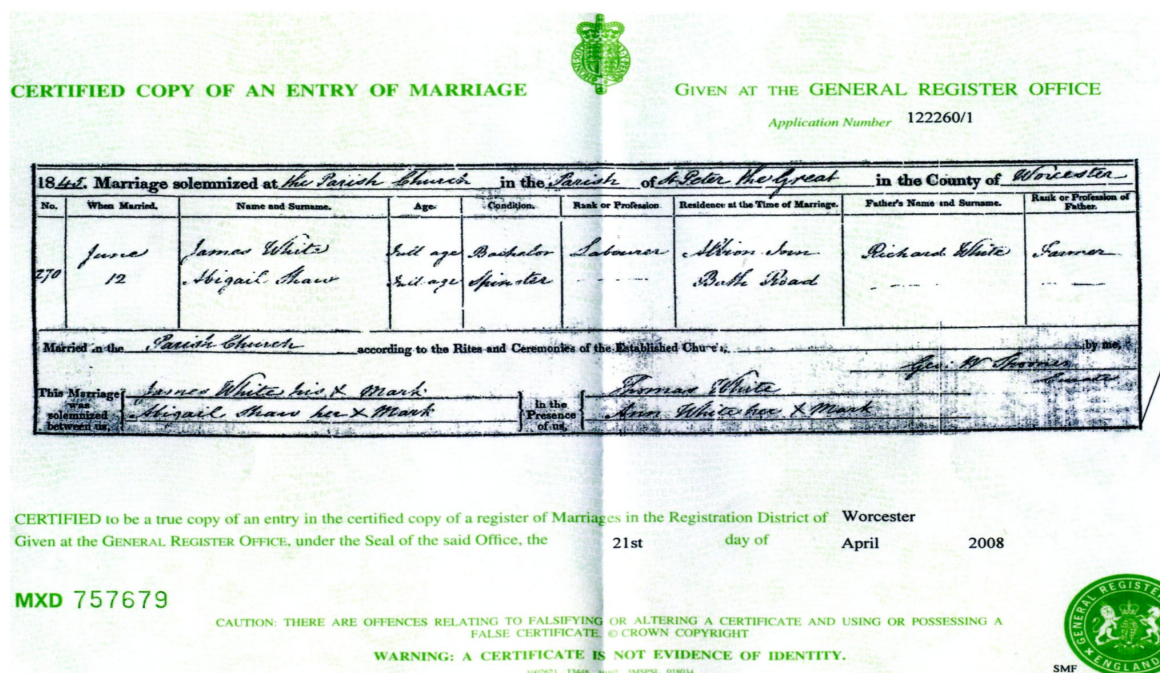 CERTIFIED COPY OF AN ENTRY OF MARRIAGE
GIVEN AT THE GENERAL REGISTER OFFICE
Application Number 122260/1
1845. Marriage solemnized at the Parish Church in the Parish of St Peter the Great in the County of Worcester
No. When Married. Name and Surname. Age. Condition. Rank or Profession Residence at the Time of Marriage. Father's Name and Surname. Rank or Profession of Father.
June James White Full age Bachelor Labourer Albion Inn Richard White Farmer
270 12 Abigail Shaw Full age Spinster Bath Road
Married in the Parish Church according to the Rites and Ceremonies of the Established Church, by me,
Geo. W Spooner
Curate
This Marriage was solemnized between us, James White his X Mark
Abigail Shaw her X Mark
In the Presence of us, Thomas White
Ann White her X Mark
CERTIFIED to be a true copy of an entry in the certified copy of a register of Marriages in the Registration District of Worcester
Given at the GENERAL REGISTER OFFICE, under the Seal of the said Office, the 21st day of April 2008
MXD 757679
CAUTION: THERE ARE OFFENCES RELATING TO FALSIFYING OR ALTERING A CERTIFICATE AND USING OR POSSESSING A
FALSE CERTIFICATE. © CROWN COPYRIGHT
WARNING: A CERTIFICATE IS NOT EVIDENCE OF IDENTITY.
GENERAL REGISTER
ENGLAND
SMF